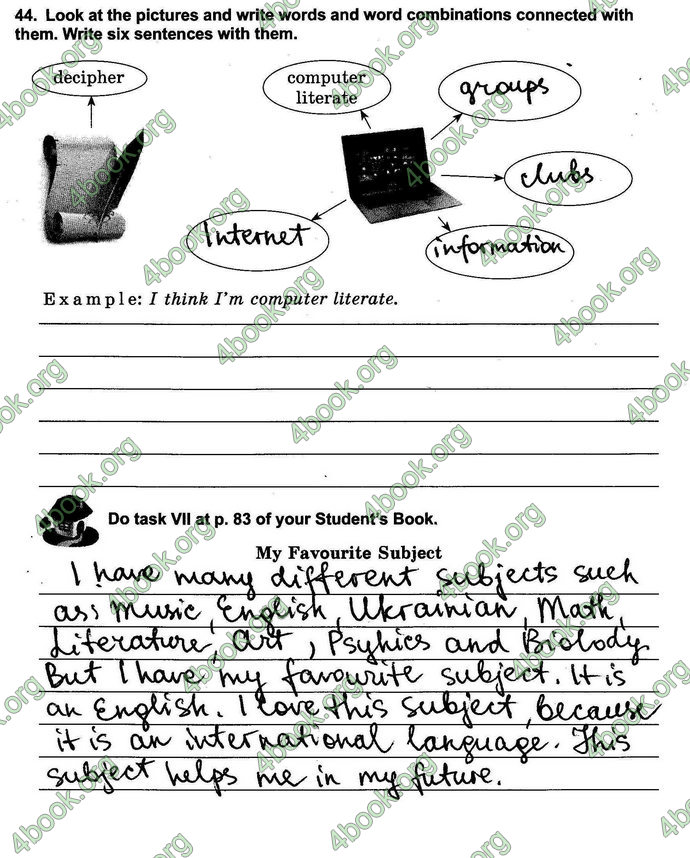 44. Look at the pictures and write words and word combinations connected with
them. Write six sentences with them.
decipher
computer
literate
groups
clubs
Internet
information
Example: I think I'm computer literate.
Do task VII at p. 83 of your Student's Book.
My Favourite Subject
I have many different subjects such
as: Music, English, Ukrainian, Math,
Literature, Art, Psyhics and Biolody.
But I have my favourite subject. It is
an English. I love this subject, because
it is an international language. This
subject helps me in my future.
4book.org